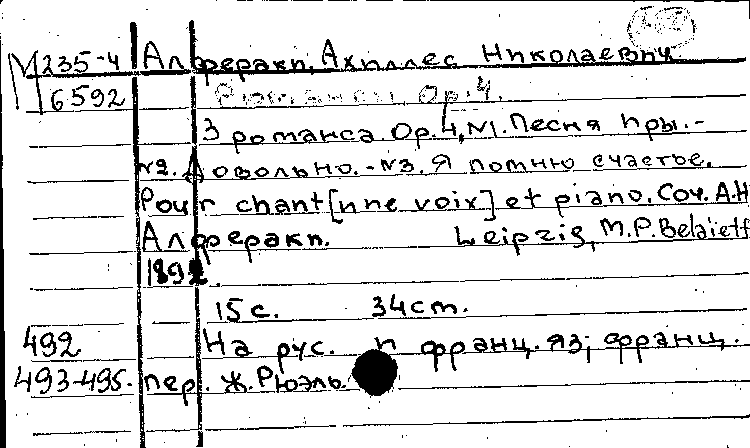 М 235-4 Алфераки, Ахиллес Николаевич
6592 Романсы Ор. 4.
3 романса. Ор. 4, №1. Песня Пры.-
№2. Довольно. - №3. Я помню счастье.
Pour chant [une voix] et piano. Соч. А.Н
Алфераки. Leipzig, M.P. Belaieff
1892.
15 с. 34 cm.
492 На рус. и франц. яз; франц.
493-495. пер. Ж. Рюэль.